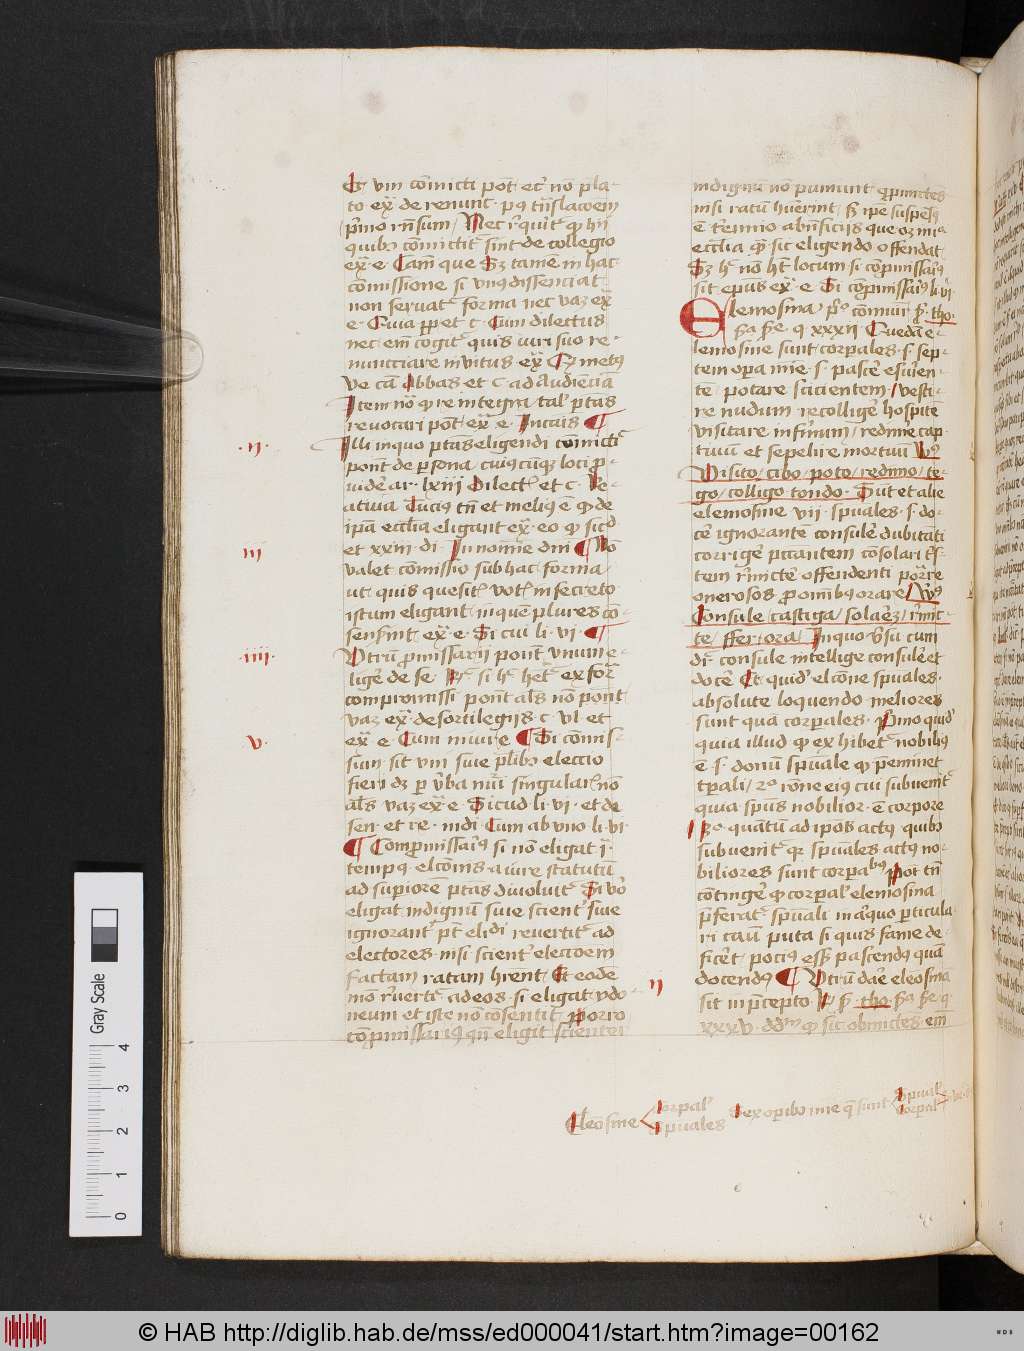 Et vni cōmicti pōt ec̄ non p̄la-
to ex̄ de renunc· pꝰ tn̄slacōem
p̄mo rn̄sum / Nec rͥquirit ꝙ hii
quibꝫ cōmictit᷑ sint de collegio
ex̄ e· Cam̄ que Sꝫ tamē in hac
cōmissione si vnꝰ dissenciat
non seruat᷑ forma nec vaꝫ ex̄
e· Quia ꝓpt et c· Cum dilectus
nec em̄ cogit᷑ quis iuri suo re-
nunciare inuitus ex̄ metꝰ
ve cā Abbas et c· ad Audienciā
Item nō ꝙ re integra / tal᷑ ptas
reuocari pōt ex̄ e· In causis ¶
·ii· Illi in quo ptās eligendi cōmictit᷑
pōnt de ꝑsona cuiꝰcūꝗ loci ꝓ-
uidē ar· lxiii Dilectꝰ et c· Ne
Lucius tn̄ et melius ē ꝙ de
ip̄a eccl̄ia eligant ex̄ e· eo ꝙ sicd
iii et xxiii di· In nomīe dn̄i ¶ Nō
valet cōmissio sub hac forma
ut quis quesit᷑ vot᷑ in secreto
istum eligant in quē plures cō-
senserint ex̄ e· Si cui li· vi· ¶
·iiii· Vtrū ꝓmissarii pont vnum e-
ligē de se· Rͬ si hͨ hēt ex for᷑
compromissi pont al̄s nō pōnt
vaꝫ ex̄ de sortilegijs c· vl et
·v· ex̄ e· Cum in iure ¶ Si cōmis-
sum sit vni sue p̄libꝫ eleccio
fieri dꝫ ꝑ v̄ba nūi singular᷑ nō
al̄s vaꝫ ex̄ e· Sicud li· vi· et de
sen· et re· iudi· Cum ab vno li· vi·
¶ Compromissariꝰ si nō eligat ī
tempꝰ elcōnis a iure statutū
ad suꝑiorē ptas diuoluit᷑ Si vō
eligat indignū siue scient᷑ siue
ignorant᷑ pt̄ elidi reuertit᷑ ad
electores nisi scient᷑ elecōem
factam ratam hr̄ent Et eodē
mō rͥuert᷑ ad eos si eligat ydo-
neum et iste nō cōsentit Porro
cōpmissariꝰ qn̄ eligit scienter
indignū nō puniunt᷑
nisi ratū hūerint / S ip̄e suspēsꝰ
ē trienno a bn̄ficiis que oꝫ in a
eccl̄ia ꝙ sic eligendo offendat
Sꝫ hͨ nō ht̄ locum si cōpmissariꝰ
sit ep̄us ex̄ e· Si cōpmissariꝰ li· vi·
Elemosina pͦ cōmuīr sͣ· tho·
sᵃ sᵉ· q· xxxii Quedā e-
lemosine sunt corꝑales· s· sep-
tem oꝑa mīe· s· pascē esurien-
tē potare scicientem / vesti-
re nudum recolligē hospitē
visitare infirmum / redimē cap-
tiuū et sepelire mortuū Vꝰ
Visito / cibo / poto / redimo / te-
go / colligo condo· Sūt et alie
elemosine vii· sp̄uales· s· do-
cē ignorantē consulē dubitāti
corrigē pccantem cōsolari tͥs-
tem rͥmictē offendenti portare
onerosos ꝓ omībꝰ orare / Vꝰ
Consule castiga / solare / rͥmic-
te / ffer / ora / In quo v̄su cum
dͬ consule intellige consulē et
docē Et quidē elcōne sp̄uales
absolute loquendo meliores
sunt quā corꝑales· Primo quid᷑
quia illud ꝙ exhibet᷑ nobiliꝰ
ē s· donū sp̄uale ꝙ p̄eminet
tp̄ali / 2º rōne eiꝰ cui subuenit᷑
quia sp̄us nobilior ē corpore
3º quātū ad ip̄os actꝰ quibꝫ
subuenit᷑ qr sp̄uales actꝰ no-
biliores sunt corꝑalibꝰ Pot tn̄
cōtingē ꝙ corꝑal᷑ elemosina
p̄ferat᷑ sp̄uali in aͦquo ꝑticula-
ri casu puta si quis fame de-
ficēt pociꝰ ess̄ pascendꝰ quā
docendꝰ ¶ Vtrū daē eleōsinā
ii sit in p̄cepto Rͬ sͣ tho· sᵃ sᵉ q·
xxxv· ꝙ sic obmictēs em̄
Eleōsine corꝑal᷑ sp̄uales
ex oꝑibꝫ mīe q̄ sunt sp̄ual᷑ corꝑal᷑
Gray Scale
4
3
2
1
0
© HAB http://diglib.hab.de/mss/ed000041/start.htm?image=00162